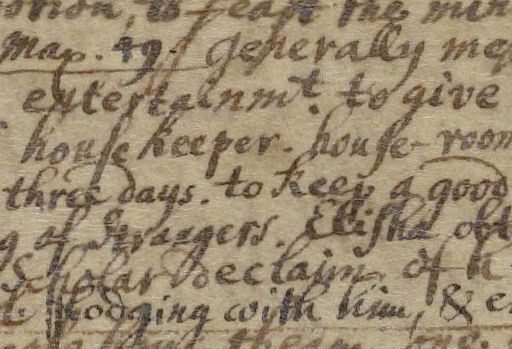 to feast the
Max. 49. generally
entertainmt. to give
house keeper. house-room
three days. to keep a good
of strangers. Elisha oft
Scholar declaim of
lodging with him, &